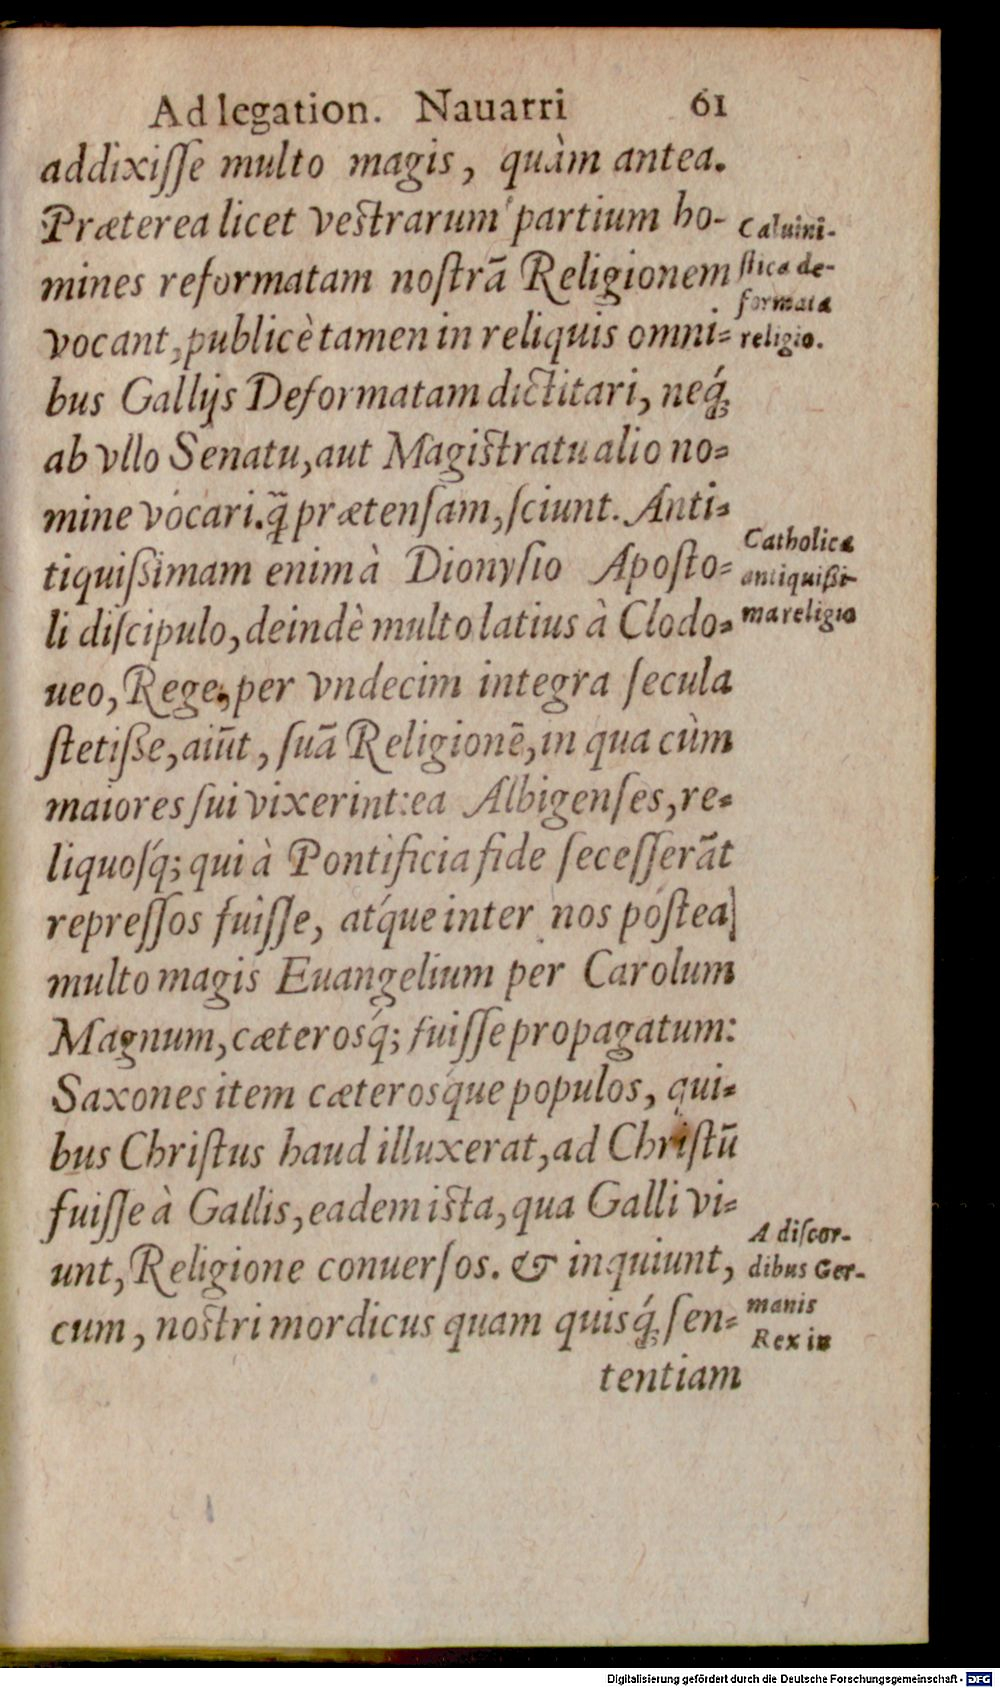 Ad legation. Nauarri 61
addixiſſe multo magis, quàm antea.
Præterea licet veſtrarum partium ho-
mines reformatam noſtrā Religionem
vocant, publicè tamen in reliquis omni-
bus Gallijs Deformatam dictitari, neq́;
ab vllo Senatu, aut Magiſtratu alio no-
mine vocari. q̃ prætenſam, ſciunt. Anti-
tiquißimam enim à Dionyſio Apoſto-
li diſcipulo, deindè multo latius à Clodo-
ueo, Rege, per vndecim integra ſecula
ſtetiſſe, aiūt, ſuā Religionē, in qua cùm
maiores ſui vixerint: ea Albigenſes, re-
liquoſq́; qui à Pontificia fide ſeceſſerāt
repreſſos fuiſſe, atq́ue inter nos póſtea
multo magis Euangelium per Carolum
Magnum, cæterosq́; fuiſſe propagatum:
Saxones item cæterosq́ue populos, qui-
bus Chriſtus haud illuxerat, ad Chriſtū
fuiſſe à Gallis, eadem iſta, qua Galli vi-
unt, Religione conuerſos. & inquiunt,
cum, noſtri mordicus quam quisq́; ſen-
tentiam
Caluini-
ſtica de-
formata
religio.
Catholica
antiquißi-
ma religio
A diſcor-
dibus Ger-
manis
Rex in
Digitalisierung gefördert durch die Deutsche Forschungsgemeinschaft - DFG